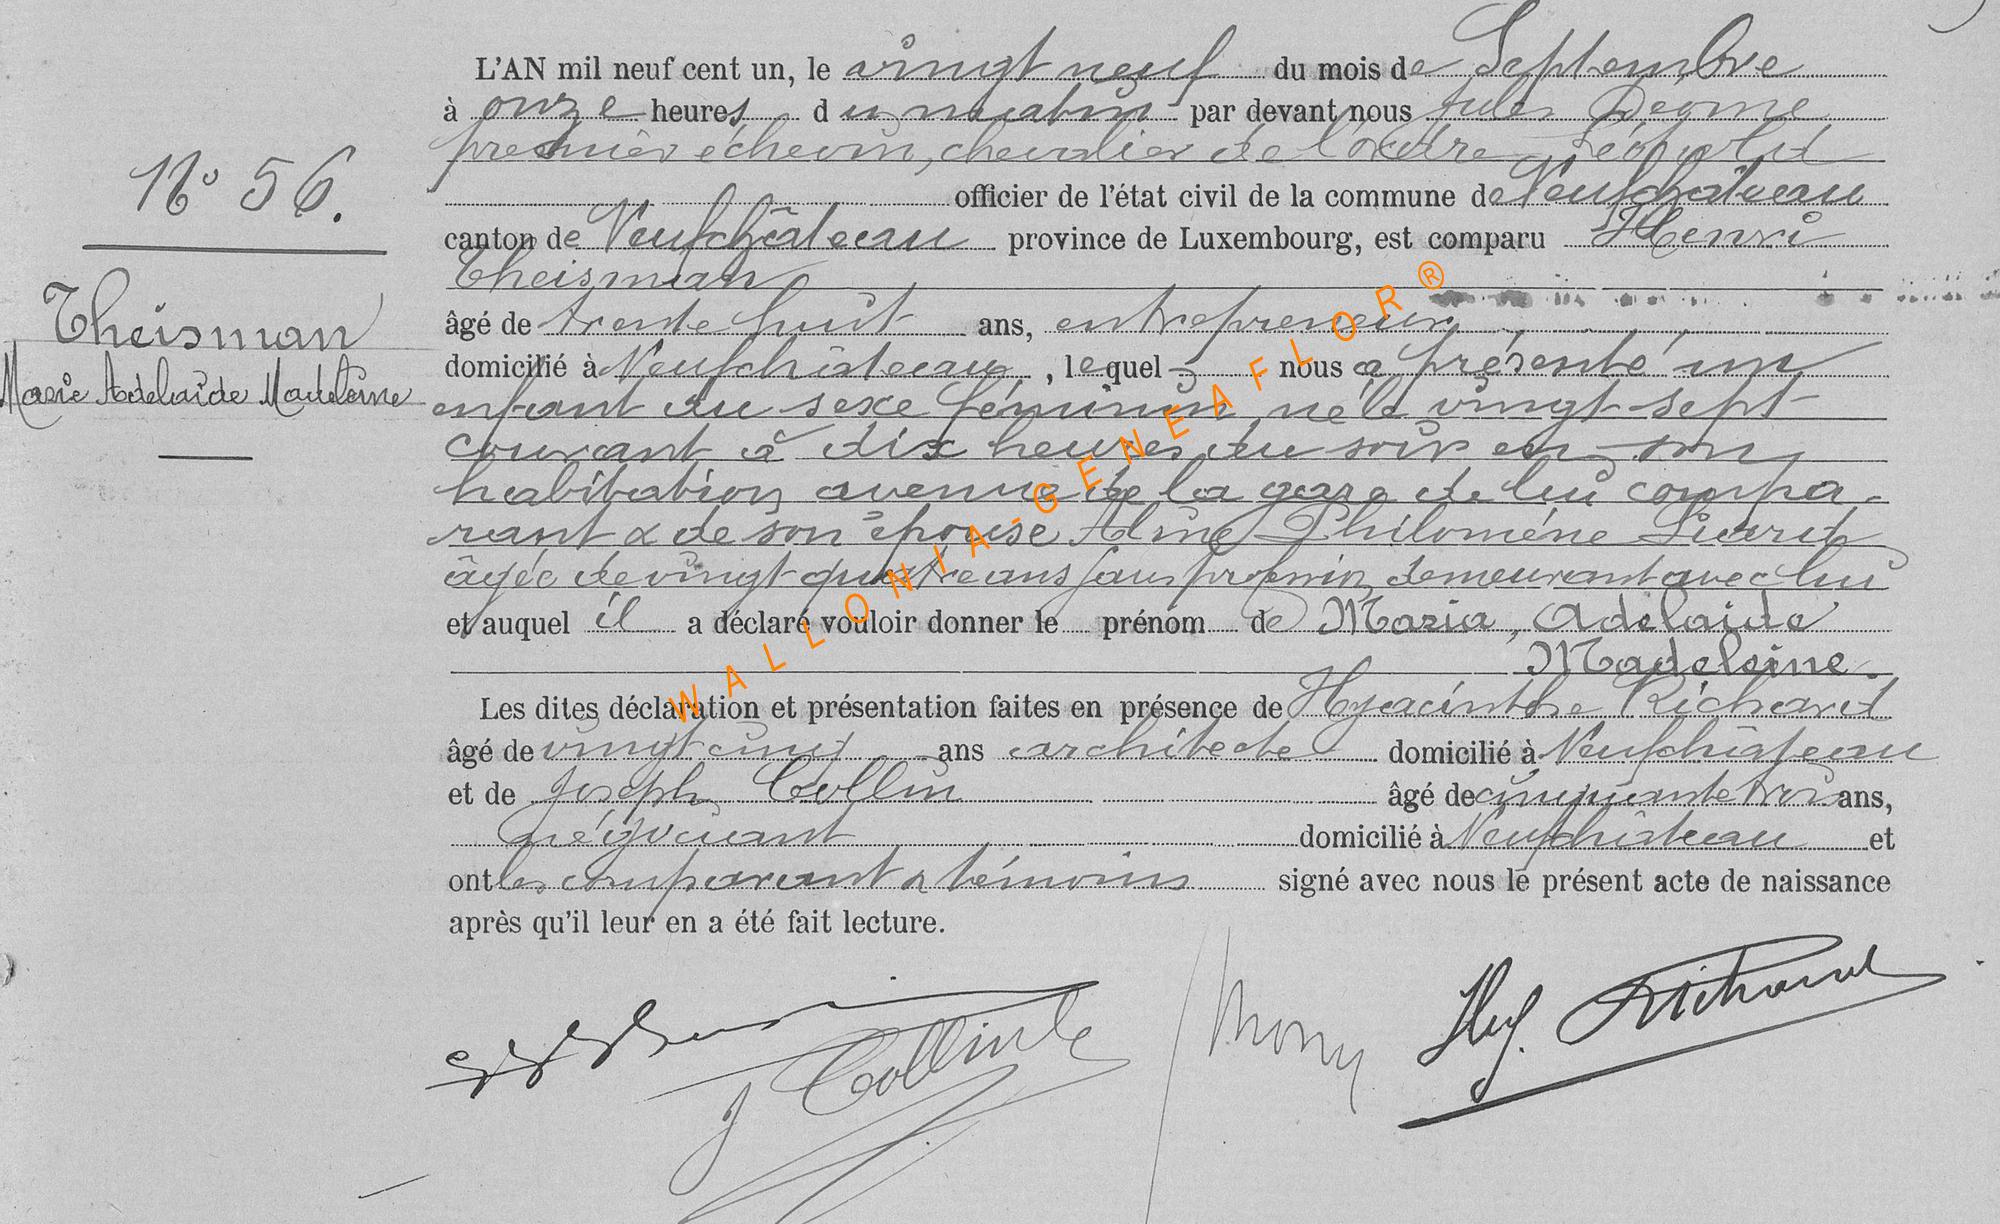 L'AN mil neuf cent un, le vingt neuf du mois de Septembre
à onze heures du matin par devant nous Jules
premier échevin, chevalier de l'ordre Léopold
officier de l'état civil de la commune de Neufchâteau
canton de Neufchâteau province de Luxembourg, est comparu Henri
Theisman
âgé de trente huit ans, entrepreneur
domicilié à Neufchâteau, lequel nous a présenté un
enfant du sexe féminin né le vingt-sept
courant à dix heures du soir en son
habitation avenue de la gare de lui compa-
rant & de son épouse Aline Philomène
âgée de vingt quatre ans sans profession demeurant avec lui
et auquel il a déclaré vouloir donner le prénom de Maria, Adelaide
Madeleine.
Les dites déclaration et présentation faites en présence de Hyacinthe Richard
âgé de vingt cinq ans architecte domicilié à Neufchâteau
et de Joseph Collin âgé de cinquante trois ans,
négociant domicilié à Neufchâteau et
ont les comparant & témoins signé avec nous le présent acte de naissance
après qu'il leur en a été fait lecture.
N° 56.
Theisman
Marie Adelaïde Madeleine
J Collin
Hy. Richard
WALLONIA-GENEAFLOR®